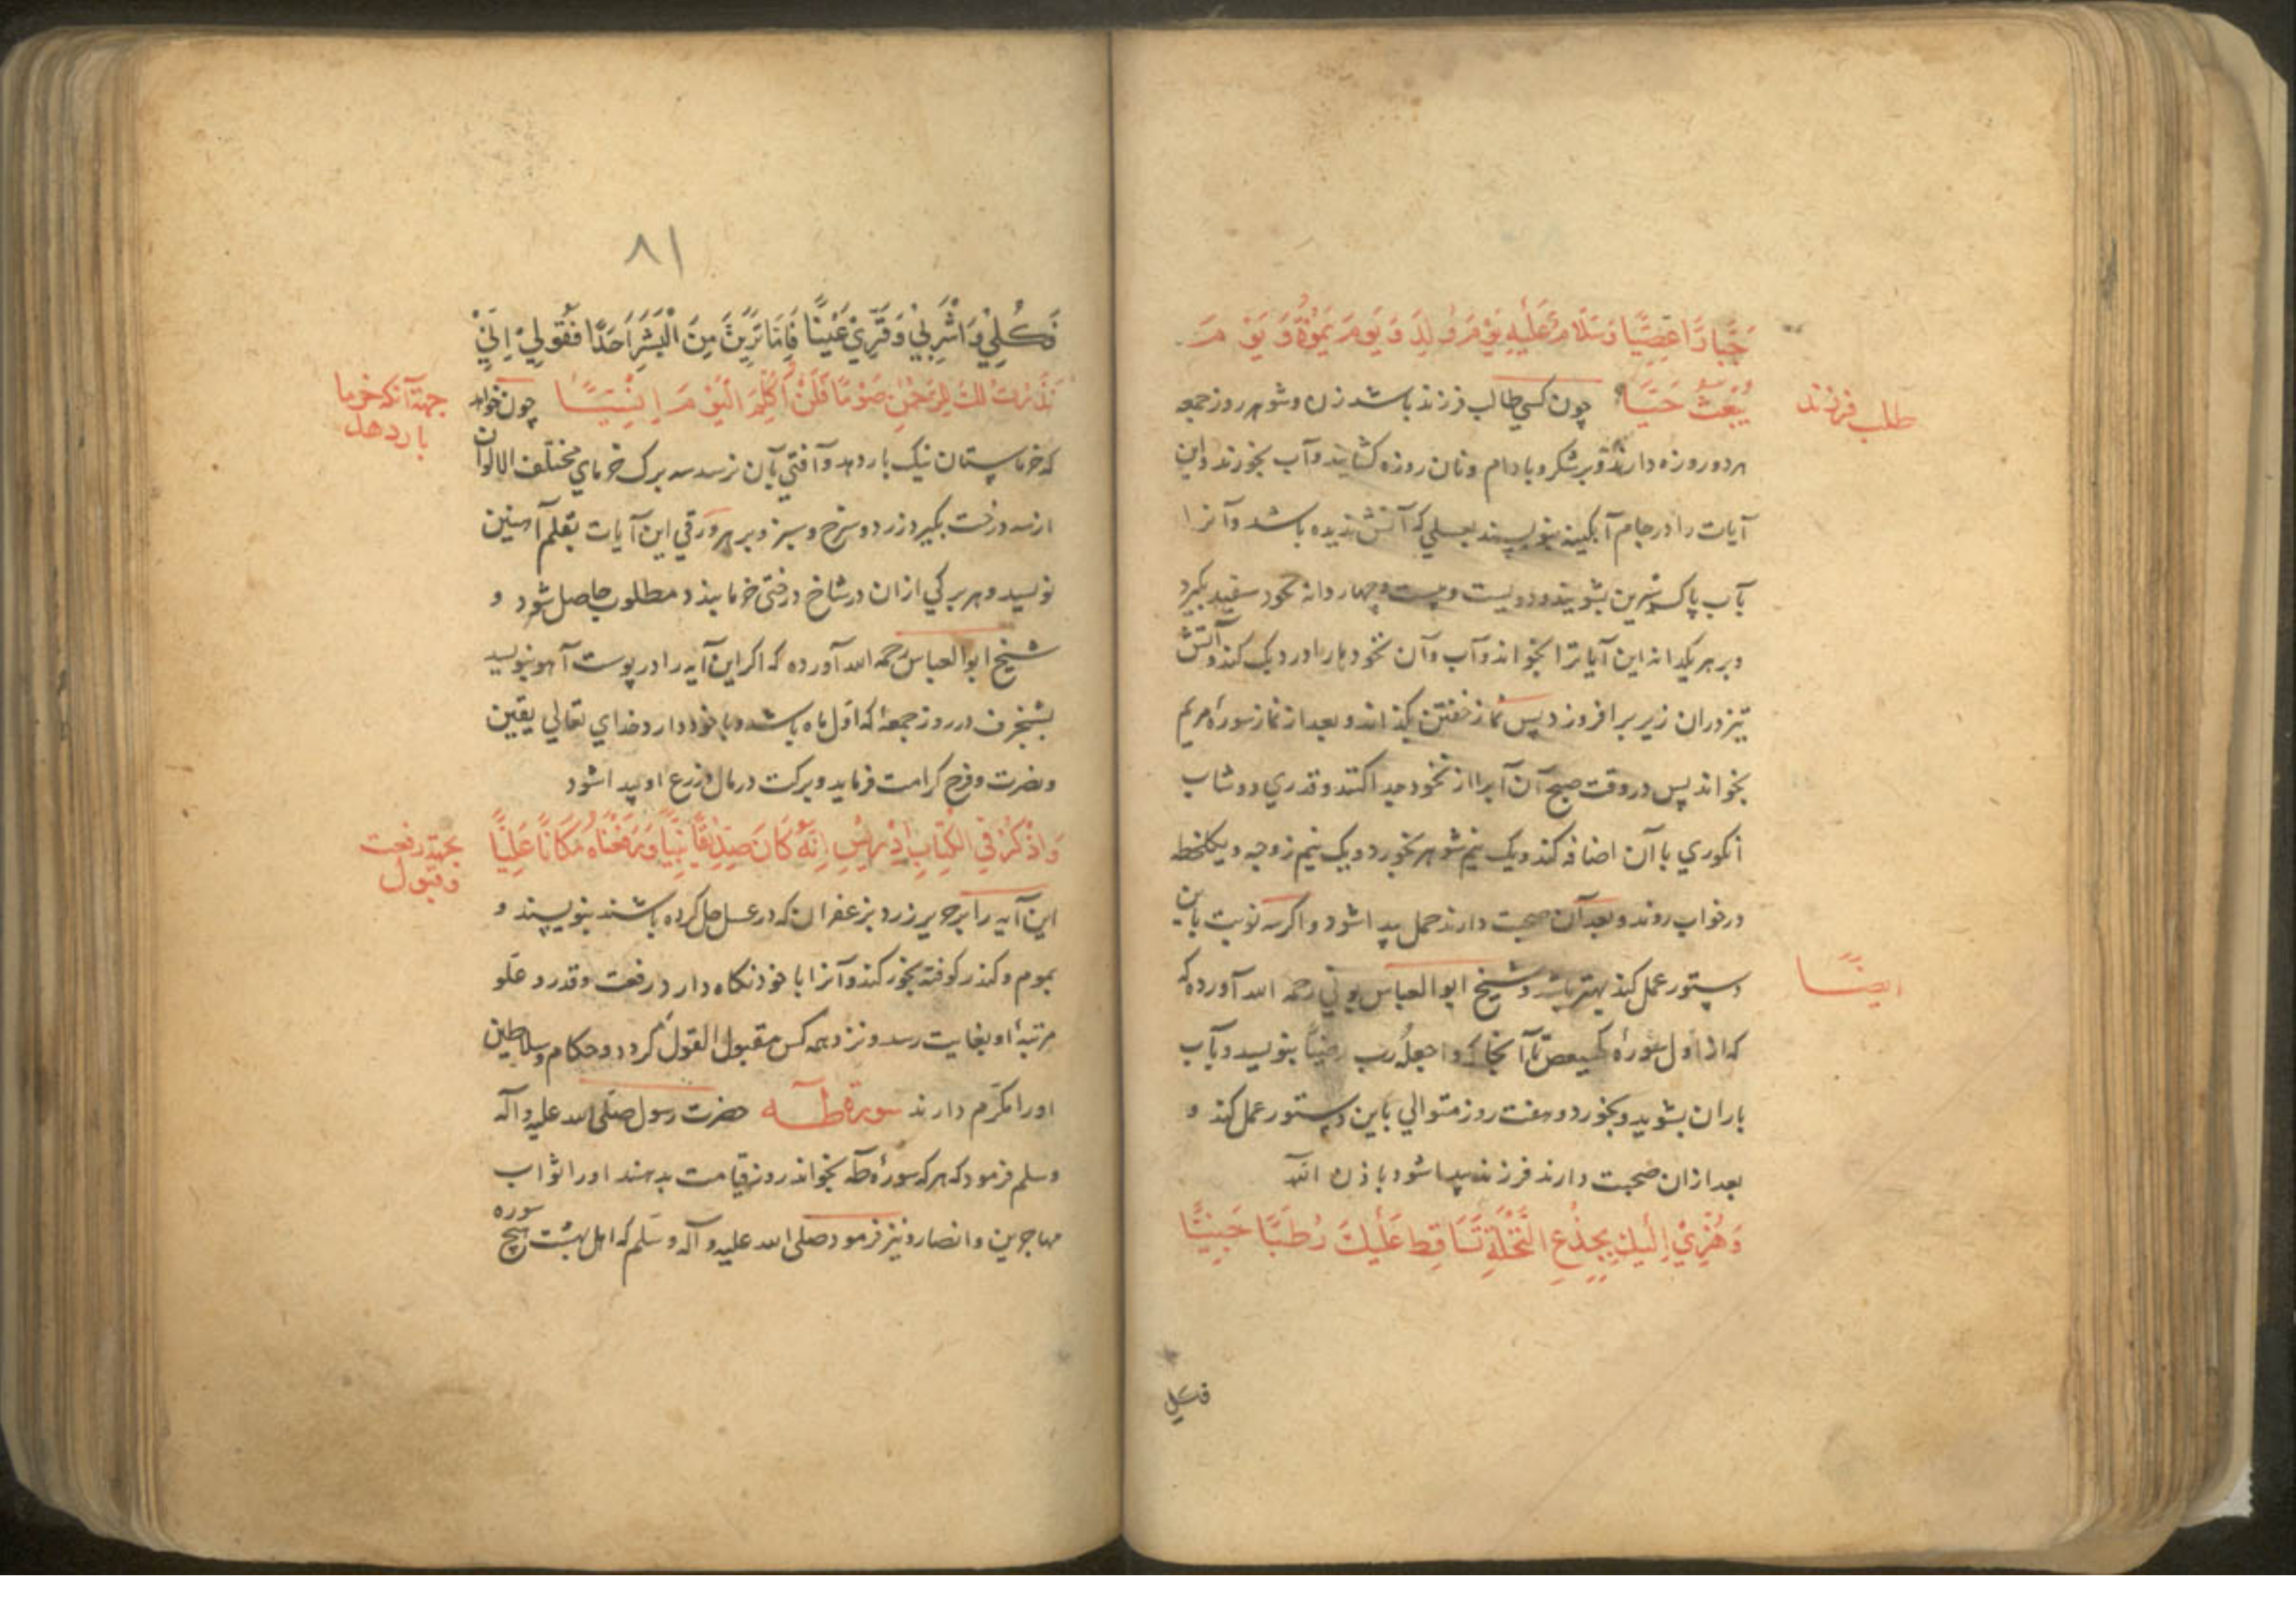 جَبَّارًا عَصِيًّا وَسَلَامٌ عَلَيْهِ يَوْمَ وُلِدَ وَيَوْمَ يَمُوتُ وَيَوْمَ
يُبْعَثُ حَيًّا چون کسی طالب فرزند باشد زن و شوهر روز جمعه
طلب فرزند
هر دو روزه دارند و بر شکر و بادام و نان روزه کشایند و آب بخورند و این
آیات را در جام آبکینه بنویسند بعسلی که آتش ندیده باشد و آنرا
بآب پاک شیرین بشویند و دویست و بیست و چهار دانه نخود سفید بکیرد
و بر هر یکدانه این آیاترا بخواند و آب و آن نخود را در دیک کند و آتش
تیز در آن زیر بر افروزد پس نماز خفتن بکذارند و بعد از نماز سوره مریم
بخواند پس در وقت صبح آن آبرا از نخود جدا کنند و قدری دوشاب
انکوری با آن اضافه کند و یک نیم شوهر بخورد و یک نیم زوجه و یکلحظه
در خواب روند و بعد آن صحبت دارند حمل پیدا شود و اکر سه نوبت باین
دستور عمل کند بهتر باشد و شیخ ابوالعباس بونی رحمه الله آورده که
ایضًا
که از اول سوره کهیعص تا آنجا که واجعله رب رضیًا بنویسد و بآب
باران بشوید و بخورد و هفت روز متوالی باین دستور عمل کند و
بعد از آن صحبت دارند فرزند پیدا شود باذن الله
وَهُزِّي إِلَيْكِ بِجِذْعِ النَّخْلَةِ تُسَاقِطْ عَلَيْكِ رُطَبًا جَنِيًّا
فکلی
۸۱
فَكُلِي وَاشْرَبِي وَقَرِّي عَيْنًا فَإِمَّا تَرَيِنَّ مِنَ الْبَشَرِ أَحَدًا فَقُولِي إِنِّي
نَذَرْتُ لِلرَّحْمٰنِ صَوْمًا فَلَنْ أُكَلِّمَ الْيَوْمَ إِنْسِيًّا چون خواهد
جهة آنکه خرما
بار دهد
که خرماستان نیک بار دهد و آفتی بآن نرسد سه برک خرمای مختلف الالوان
از سه درخت بکیرد زرد و سرخ و سبز و بر هر ورقی این آیات بقلم آهنین
نویسد و هر برکی از آن در شاخ درختی خرما بندد مطلوب حاصل شود و
شیخ ابوالعباس رحمه الله آورده که اکر این آیه را در پوست آهو بنویسد
بشنجرف در روز جمعه که اول ماه باشد و با خود دارد خدای تعالی یقین
و نصرت و فرح کرامت فرماید و برکت در مال و زرع او پیدا شود
وَاذْكُرْ فِي الْكِتَابِ إِدْرِيسَ إِنَّهُ كَانَ صِدِّيقًا نَبِيًّا وَرَفَعْنَاهُ مَكَانًا عَلِيًّا
بجهة رفعت
و قبول
این آیه را بر حریر زرد بزعفران که در عسل حل کرده باشند بنویسند و
بموم و کندر کوفته بخور کند و آنرا با خود نکاه دارد رفعت و قدر و علو
مرتبه او بغایت رسد و نزد همه کس مقبول القول کردد و حکام و سلاطین
او را مکرم دارند سورة طه حضرت رسول صلی الله علیه و آله
و سلم فرمود که هر که سوره طه بخواند روز قیامت بدهند او را ثواب
مهاجرین و انصار و نیز فرمود صلی الله علیه و آله و سلم که اهل بهشت هیچ سوره